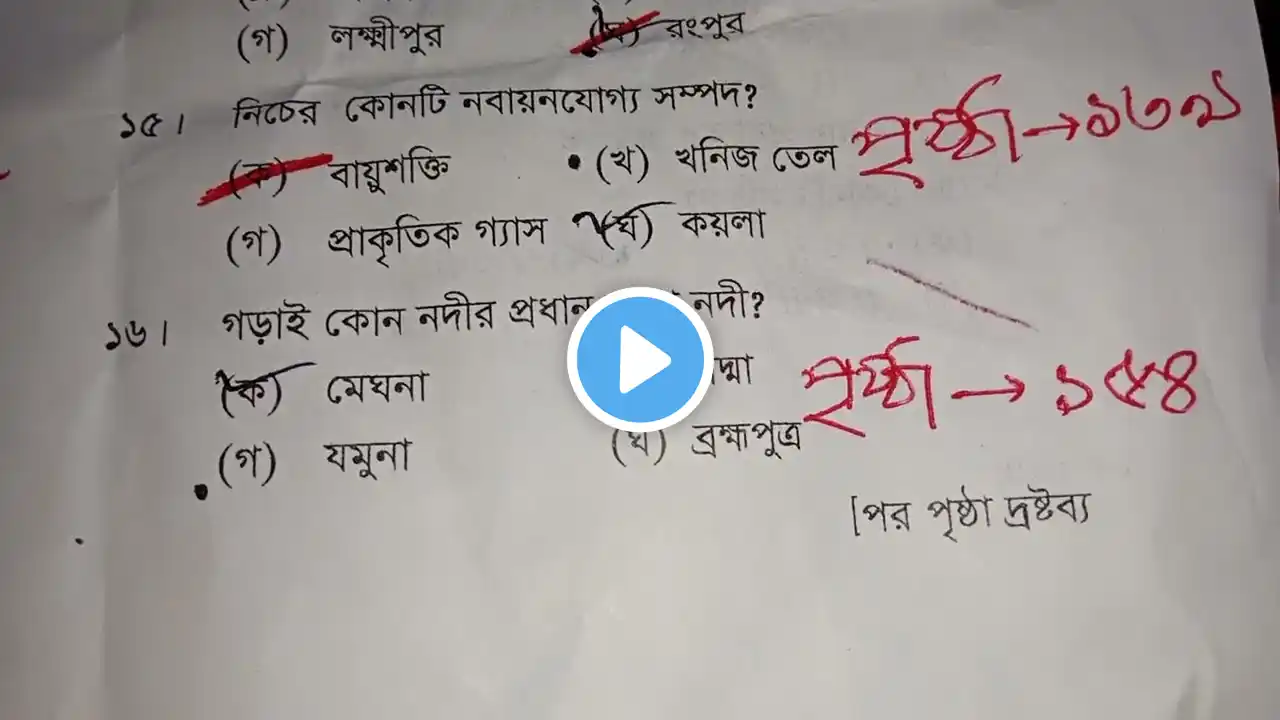 (গ) লক্ষ্মীপুর (ঘ) রংপুর
১৫। নিচের কোনটি নবায়নযোগ্য সম্পদ?
(ক) বায়ুশক্তি (খ) খনিজ তেল পৃষ্ঠা → ১৬৯
(গ) প্রাকৃতিক গ্যাস (ঘ) কয়লা
১৬। গড়াই কোন নদীর প্রধান নদী?
(ক) মেঘনা পৃষ্ঠা → ১৫৪
(গ) যমুনা (ঘ) ব্রহ্মপুত্র
[পর পৃষ্ঠা দ্রষ্টব্য